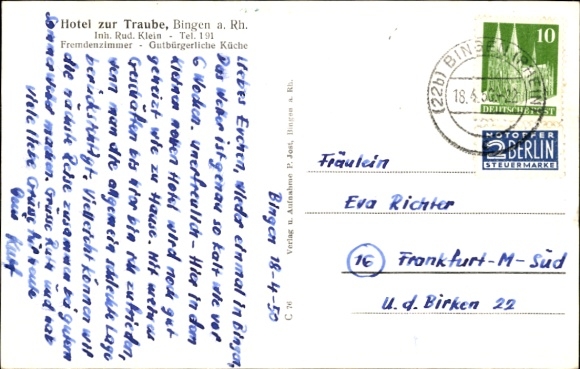 Hotel zur Traube, Bingen a. Rh.
Inh. Rud. Klein - Tel. 191
Fremdenzimmer - Gutbürgerliche Küche
Bingen 18-4-50
Liebes Evchen, wieder einmal in Bingen,
Das Wetter ist genau so kalt wie vor
6 Wochen. unerfreulich - Hier in dem
kleinen netten Hotel wird noch gut
geheizt wie zu Hause. Mit meinen
Geschäften bis hier bin ich zufrieden,
wenn man die allgemein schlechte Lage
berücksichtigt. Vielleicht können wir
die nächste Reise zusammen bei gutem
Sommerwetter machen. Grüsse Ruth und hab
viele liebe Grüsse für heute
Dein Kurt
C 76
Verlag u. Aufnahme P. Jost, Bingen a. Rh.
10
DEUTSCHE POST
(22b) BINGEN (RHEIN)
18.4.50
NOTOPFER
2 BERLIN
STEUERMARKE
Fräulein
Eva Richter
16 Frankfurt-M-Süd
U. d. Birken 22